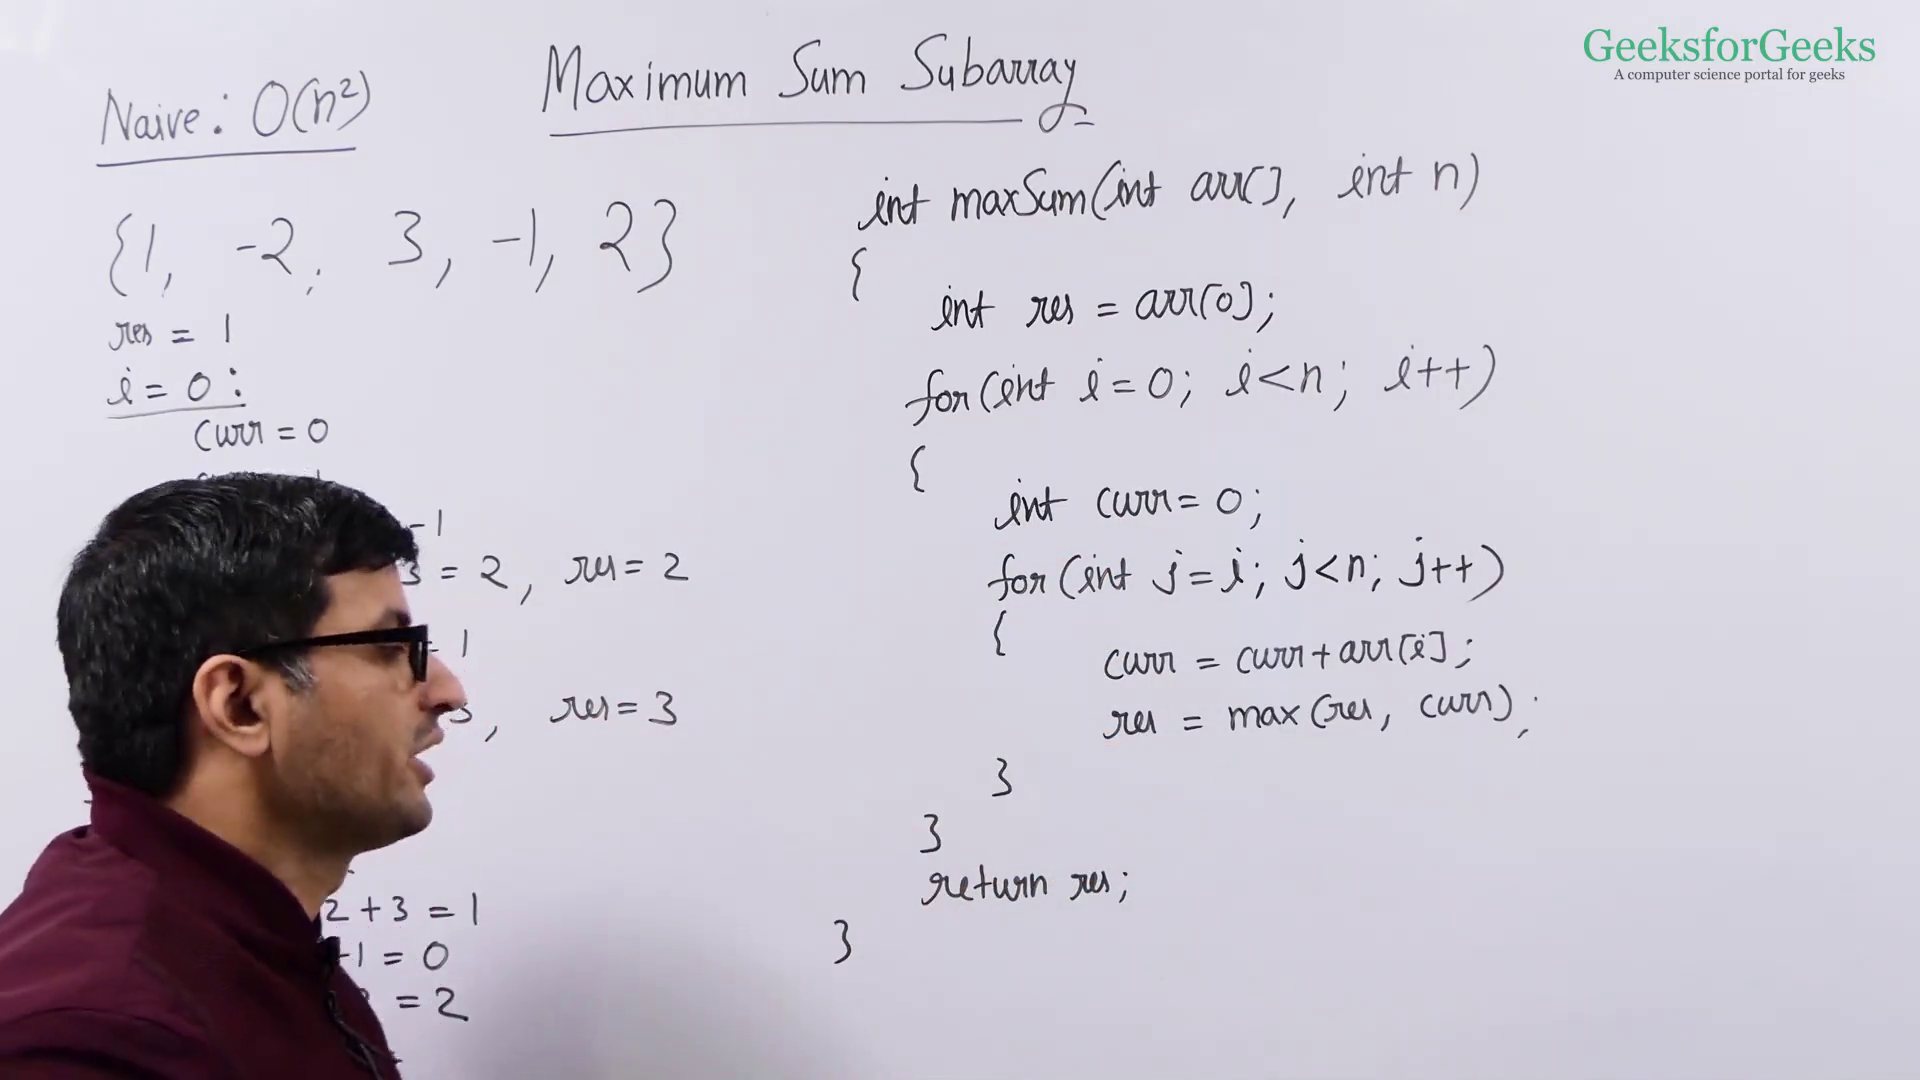 GeeksforGeeks
A computer science portal for geeks
Maximum Sum Subarray
Naive: O(n²)
{1, -2, 3, -1, 2}
res = 1
i = 0 :
curr = 0
-1
3 = 2, res = 2
1
3, res = 3
2 + 3 = 1
-1 = 0
= 2
int maxSum(int arr[], int n)
{
int res = arr[0];
for(int i = 0; i<n; i++)
{
int curr = 0;
for(int j = i; j<n; j++)
{
curr = curr + arr[i];
res = max(res, curr);
}
}
return res;
}